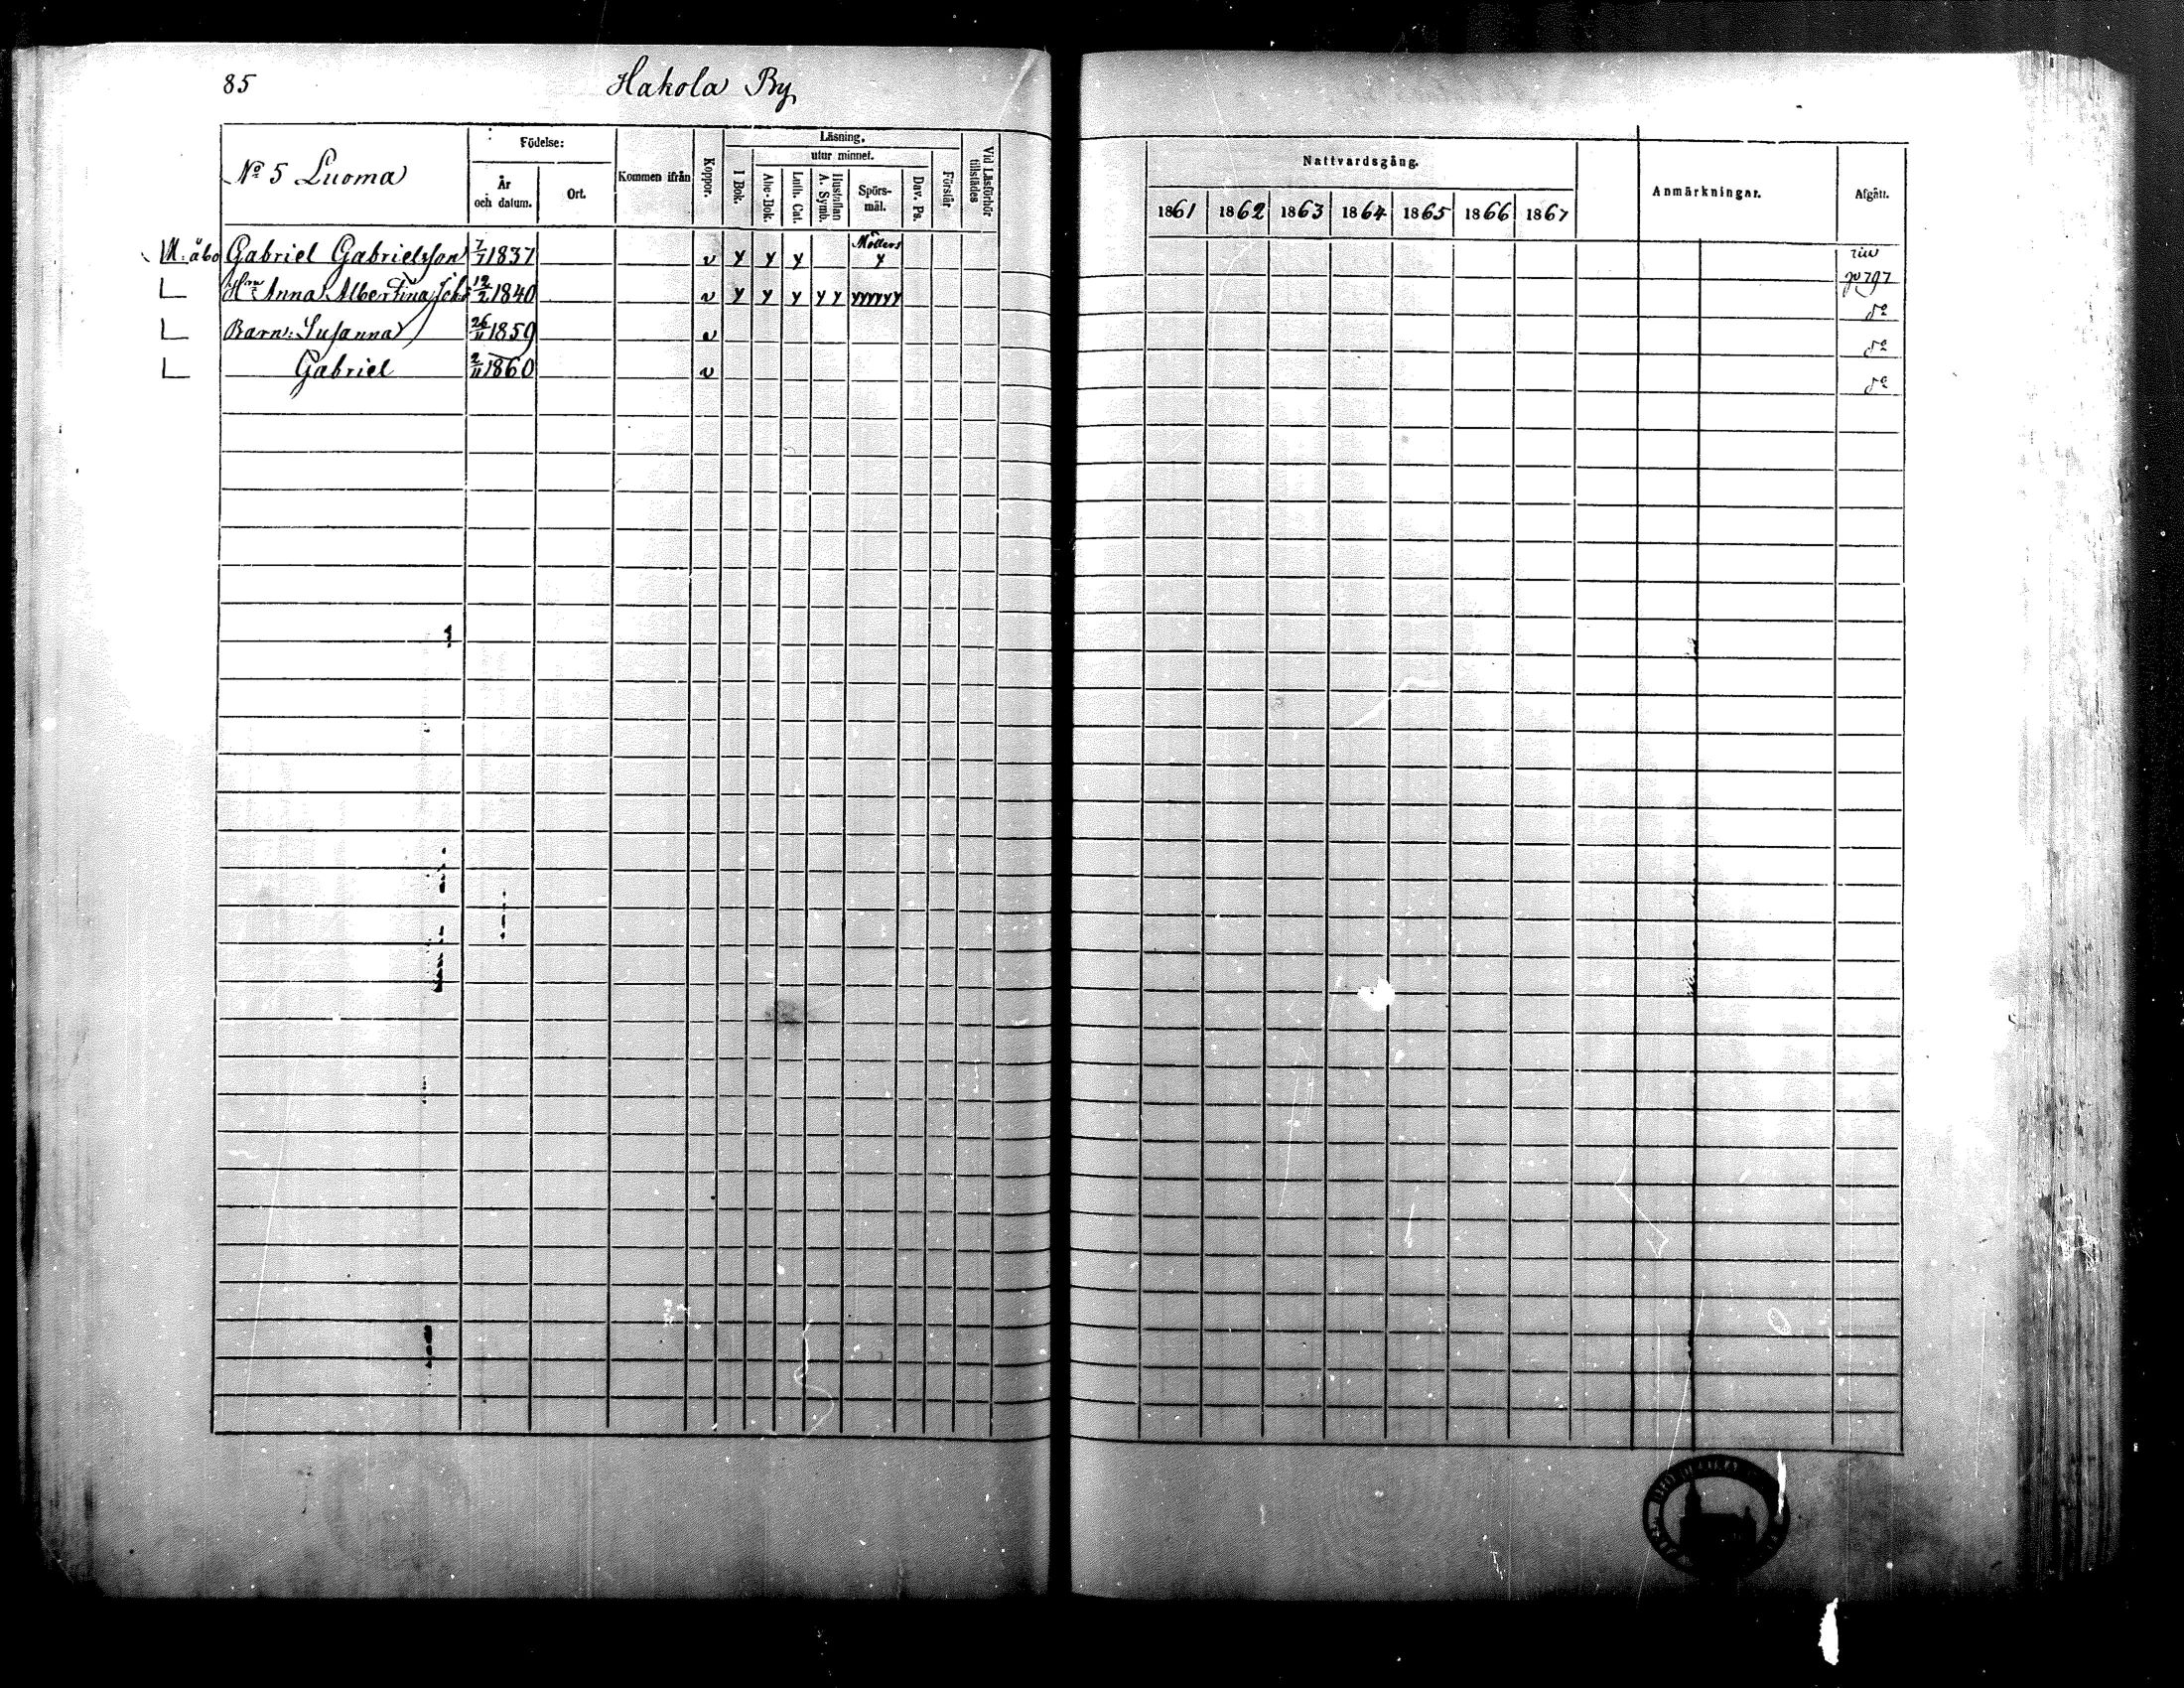 85
Hakola By
No 5 Luoma
Födelse:
År och datum.
Ort.
Kommen ifrån
Koppor.
Läsning.
I Bok.
utur minnet.
Abc-Bok.
Luth. Cat.
Hustaflan A. Symb.
Spörs-mål.
Dav. Ps.
Förstår
Vid Läsförhör tillstädes
Nattvardsgång.
1861 1862 1863 1864 1865 1866 1867
Anmärkningar.
Afgått.
M: åbo Gabriel Gabrielsson 7/7 1837 v y y y Möllers y
Hru Anna Albertina 12/2 1840 v y y y y y yyyyyy
Barn: Susanna 26/11 1859 v do
Gabriel 2/11 1860 v do